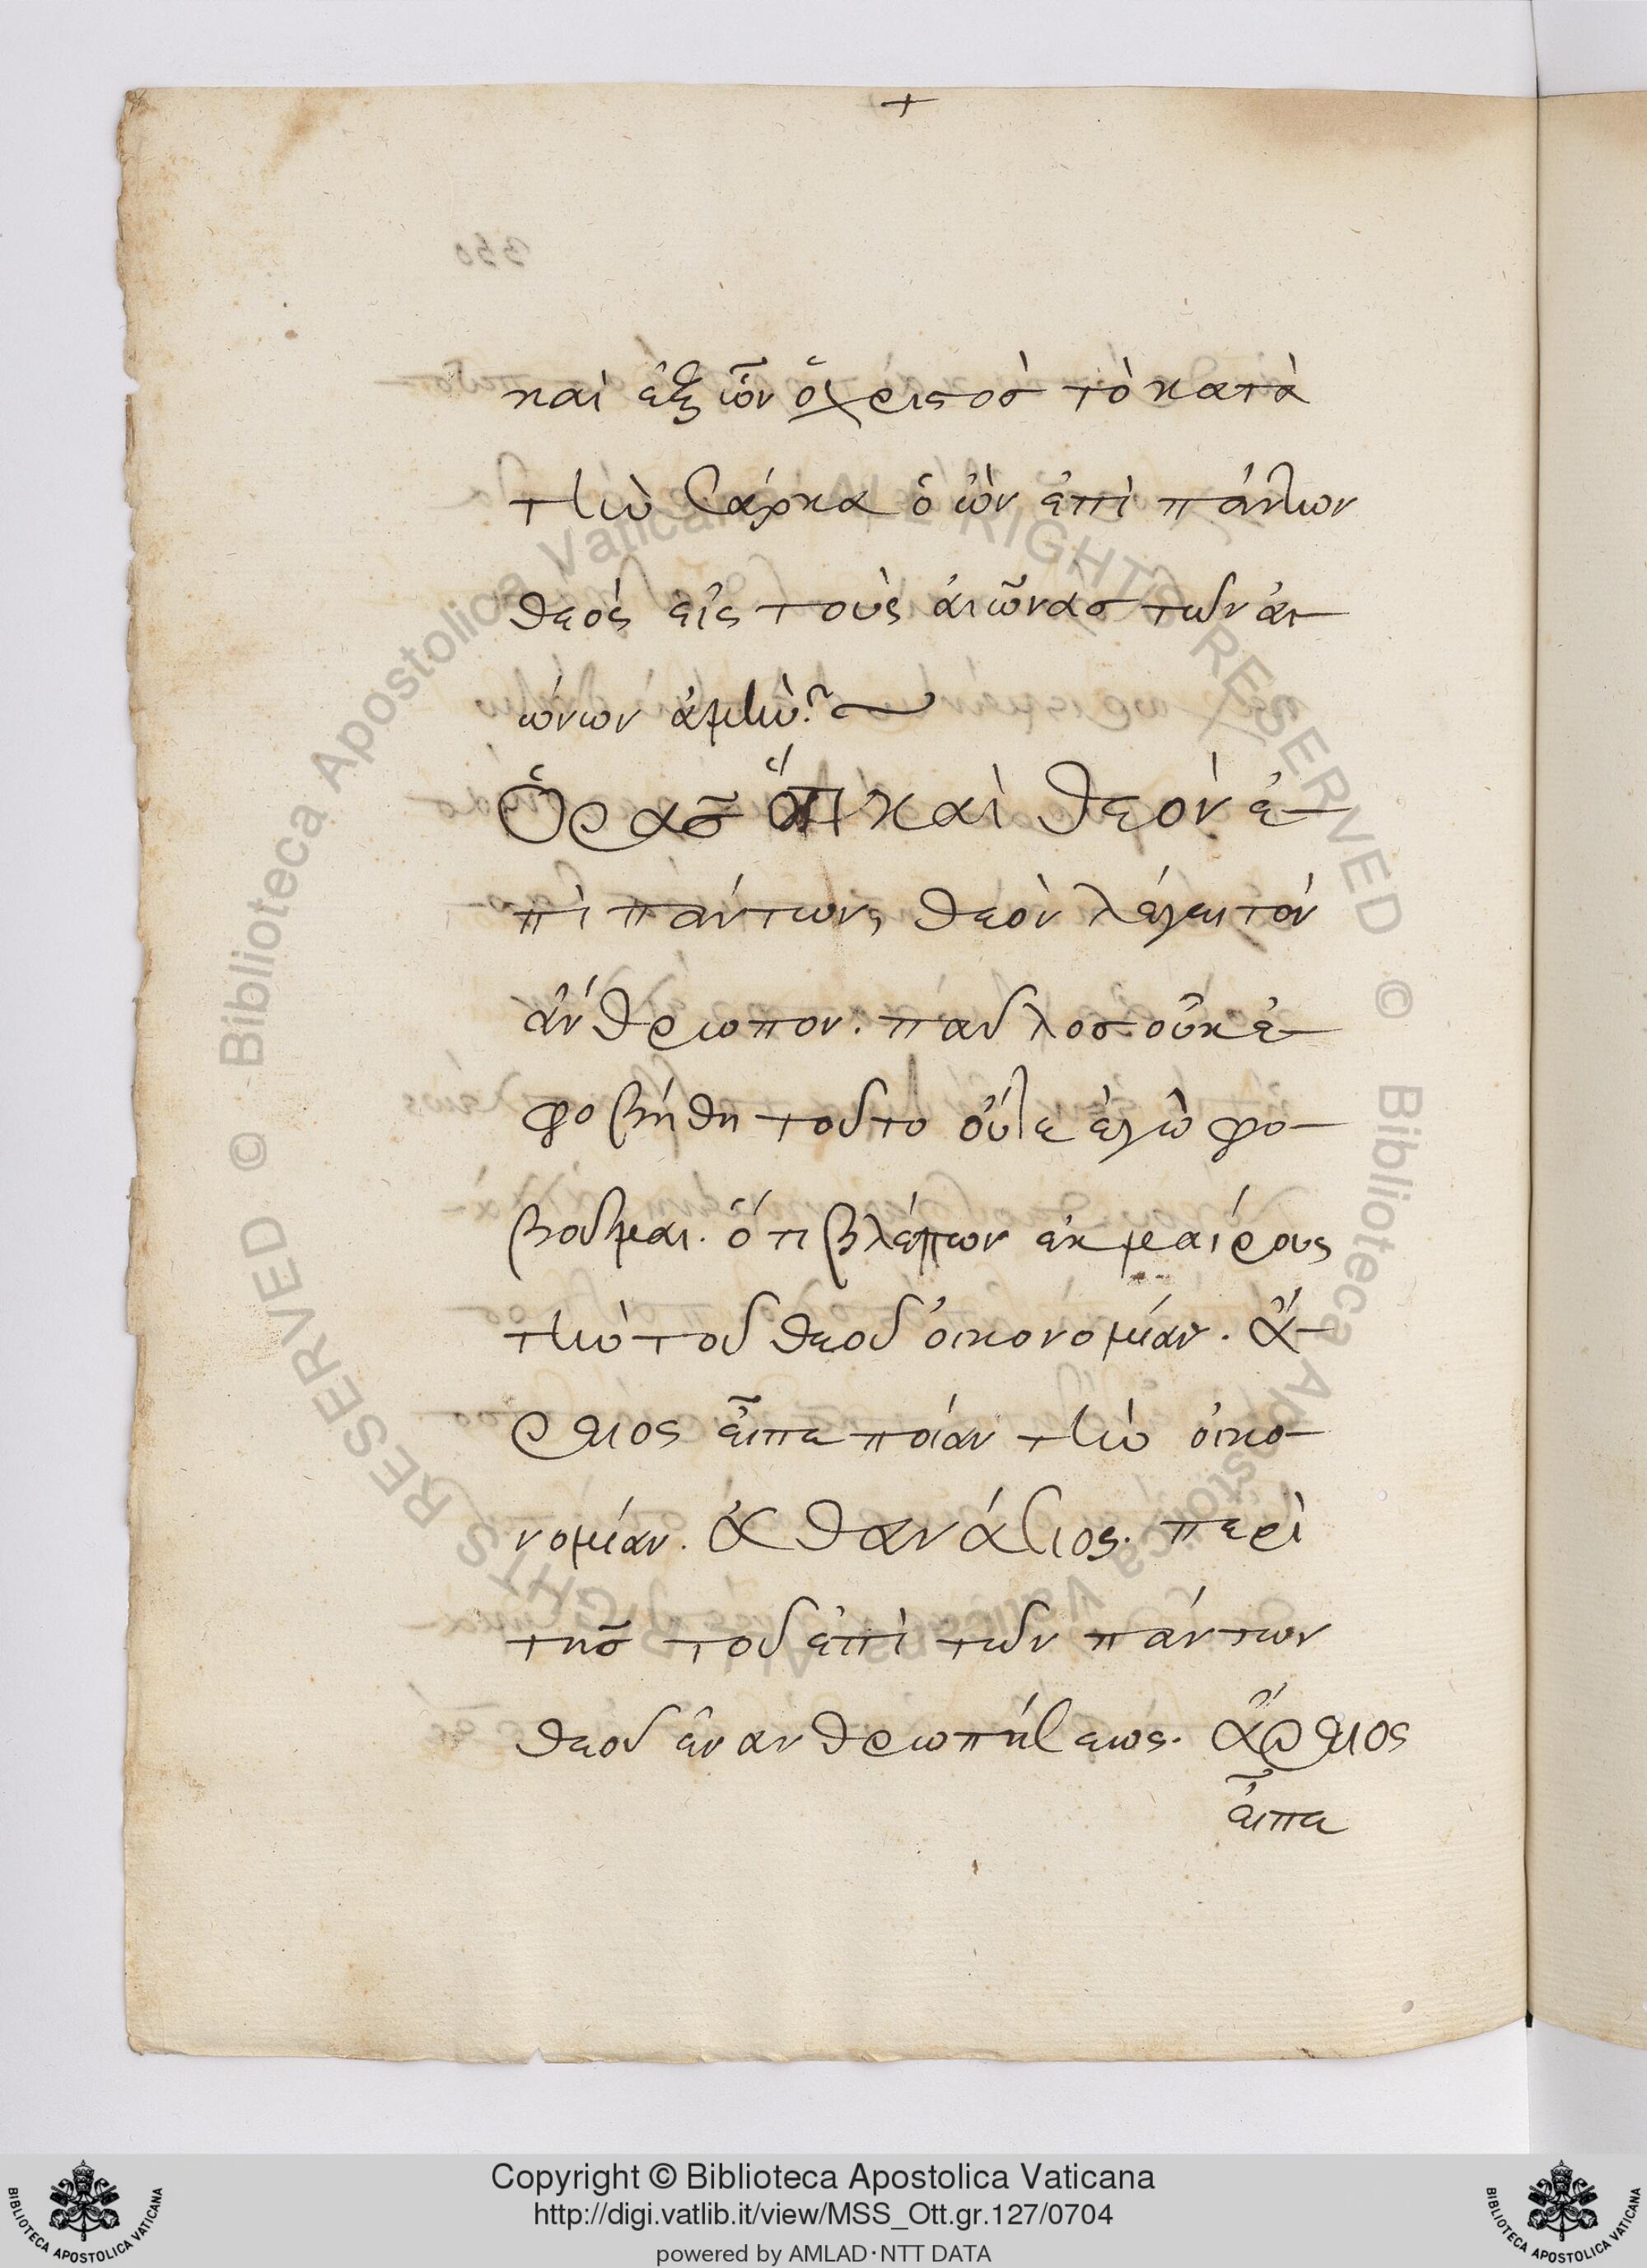 +
καὶ ἐξ ὧν ὁ χριστὸσ τὸ κατὰ
τὴν σάρκα ὁ ὢν ἐπὶ πάντων
θεός εἰς τοὺς ἀιῶνασ τῶν ἀι
ώνων ἀμὴν:~
Ὁρᾶσ ὅτι καὶ θεὸν ἐ-
πὶ πάντων, θεὸν λέγει τὸν
ἄνθρωπον. παῦλοσ οὐκ ἐ-
φοβήθη τοῦτο οὔτε ἐγὼ φο-
βοῦμαι. ὅτι βλέπων ἐκ μαίρους
τὴν τοῦ θεοῦ ὀικονομίαν. Ἄ-
ρειος εἶπε ποίαν τὴν ὀικο-
νομίαν. Ἀθανάσιος. περὶ
τῆσ τοῦ ἐπὶ τῶν πάντων
θεοῦ ἐνανθρωπήσεως. Ἄρειος
εἶπε
Copyright © Biblioteca Apostolica Vaticana
http://digi.vatlib.it/view/MSS_Ott.gr.127/0704
powered by AMLAD·NTT DATA
BIBLIOTECA APOSTOLICA VATICANA
BIBLIOTECA APOSTOLICA VATICANA
© Biblioteca Apostolica Vaticana ALL RIGHTS RESERVED
© Biblioteca Apostolica Vaticana ALL RIGHTS RESERVED